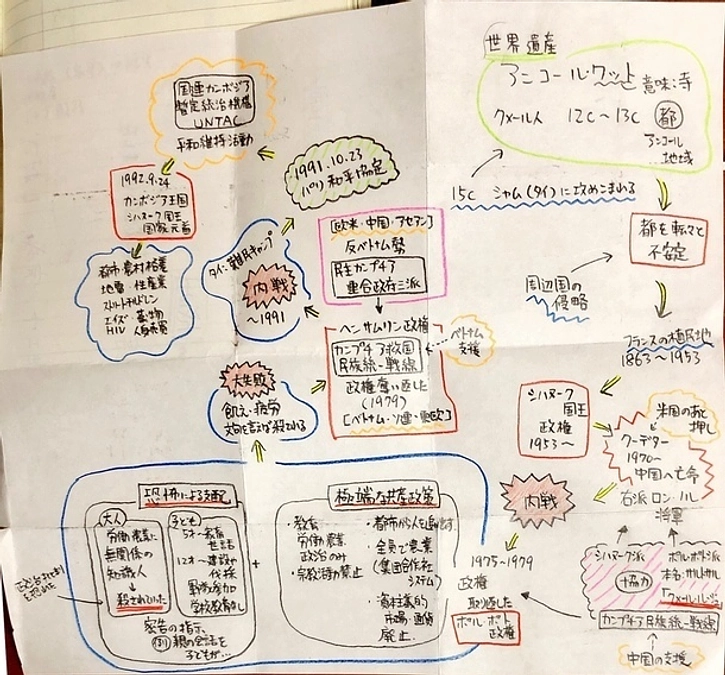 世界遺産
アンコール・ワット 意味:寺
クメール人 12c〜13c 都
アンコール
地域
15c シャム(タイ)に攻めこまれる
都を転々と
不安定
周辺国の
侵略
フランスの植民地
1863〜1953
シハヌーク
国王
政権
1953〜
米国のあと
押し
クーデター
1970〜
中国へ亡命
右派ロン・ノル
将軍
内戦
シハヌーク派
協力
ポル・ポト派
本名:サルトサル
「クメール・ルージュ」
カンプチア民族統一戦線
中国の支援
1975〜1979
政権
取り返した
ポル・ポト
政権
極端な共産政策
・教育
労働 農業
政治のみ
・宗教活動禁止
・都市から人を追い出す
・全員で農業
(集団合作社
システム)
・資本主義的
市場・通貨
廃止
+
恐怖による支配
大人
労働 農業に
無関係の
知識人
↓
殺されていた
子ども
5才〜教育
世話
12才〜建設や
伐採
戦労参加
学校教育なし
密告の指示
例 親の会話を
子どもが…
大失敗
飢え・疲労
文句を言えば殺される
ヘンサムリン政権
カンプチア救国
民族統一戦線
政権奪い返した
(1979)
[ベトナム・ソ連・東欧]
ベトナム
支援
[欧米・中国・アセアン]
反ベトナム勢
民主カンプチア
連合政府三派
タイ難民キャンプ
内戦
〜1991
1991.10.23
パリ和平協定
国連カンボジア
暫定統治機構
UNTAC
平和維持活動
1992.9.24
カンボジア王国
シハヌーク国王
国家元首
都市・農村格差
地雷 性産業
ストリートチルドレン
エイズ 薬物
HIV 人身売買